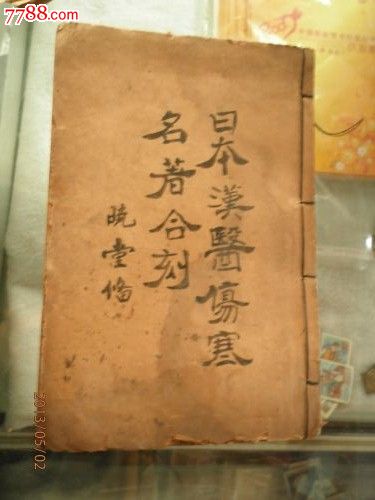 7788.com
日本漢醫傷寒
名著合刻
晓堂俻
2013/05/02